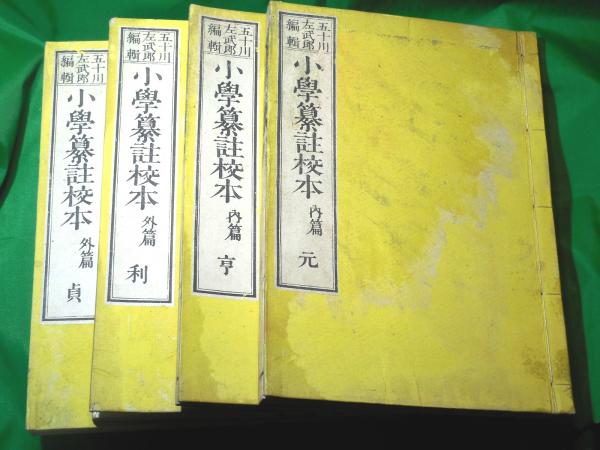 五十川
左武郎
編輯
小學纂註校本 內篇 元
五十川
左武郎
編輯
小學纂註校本 內篇 亨
五十川
左武郎
編輯
小學纂註校本 外篇 利
五十川
左武郎
編輯
小學纂註校本 外篇 貞